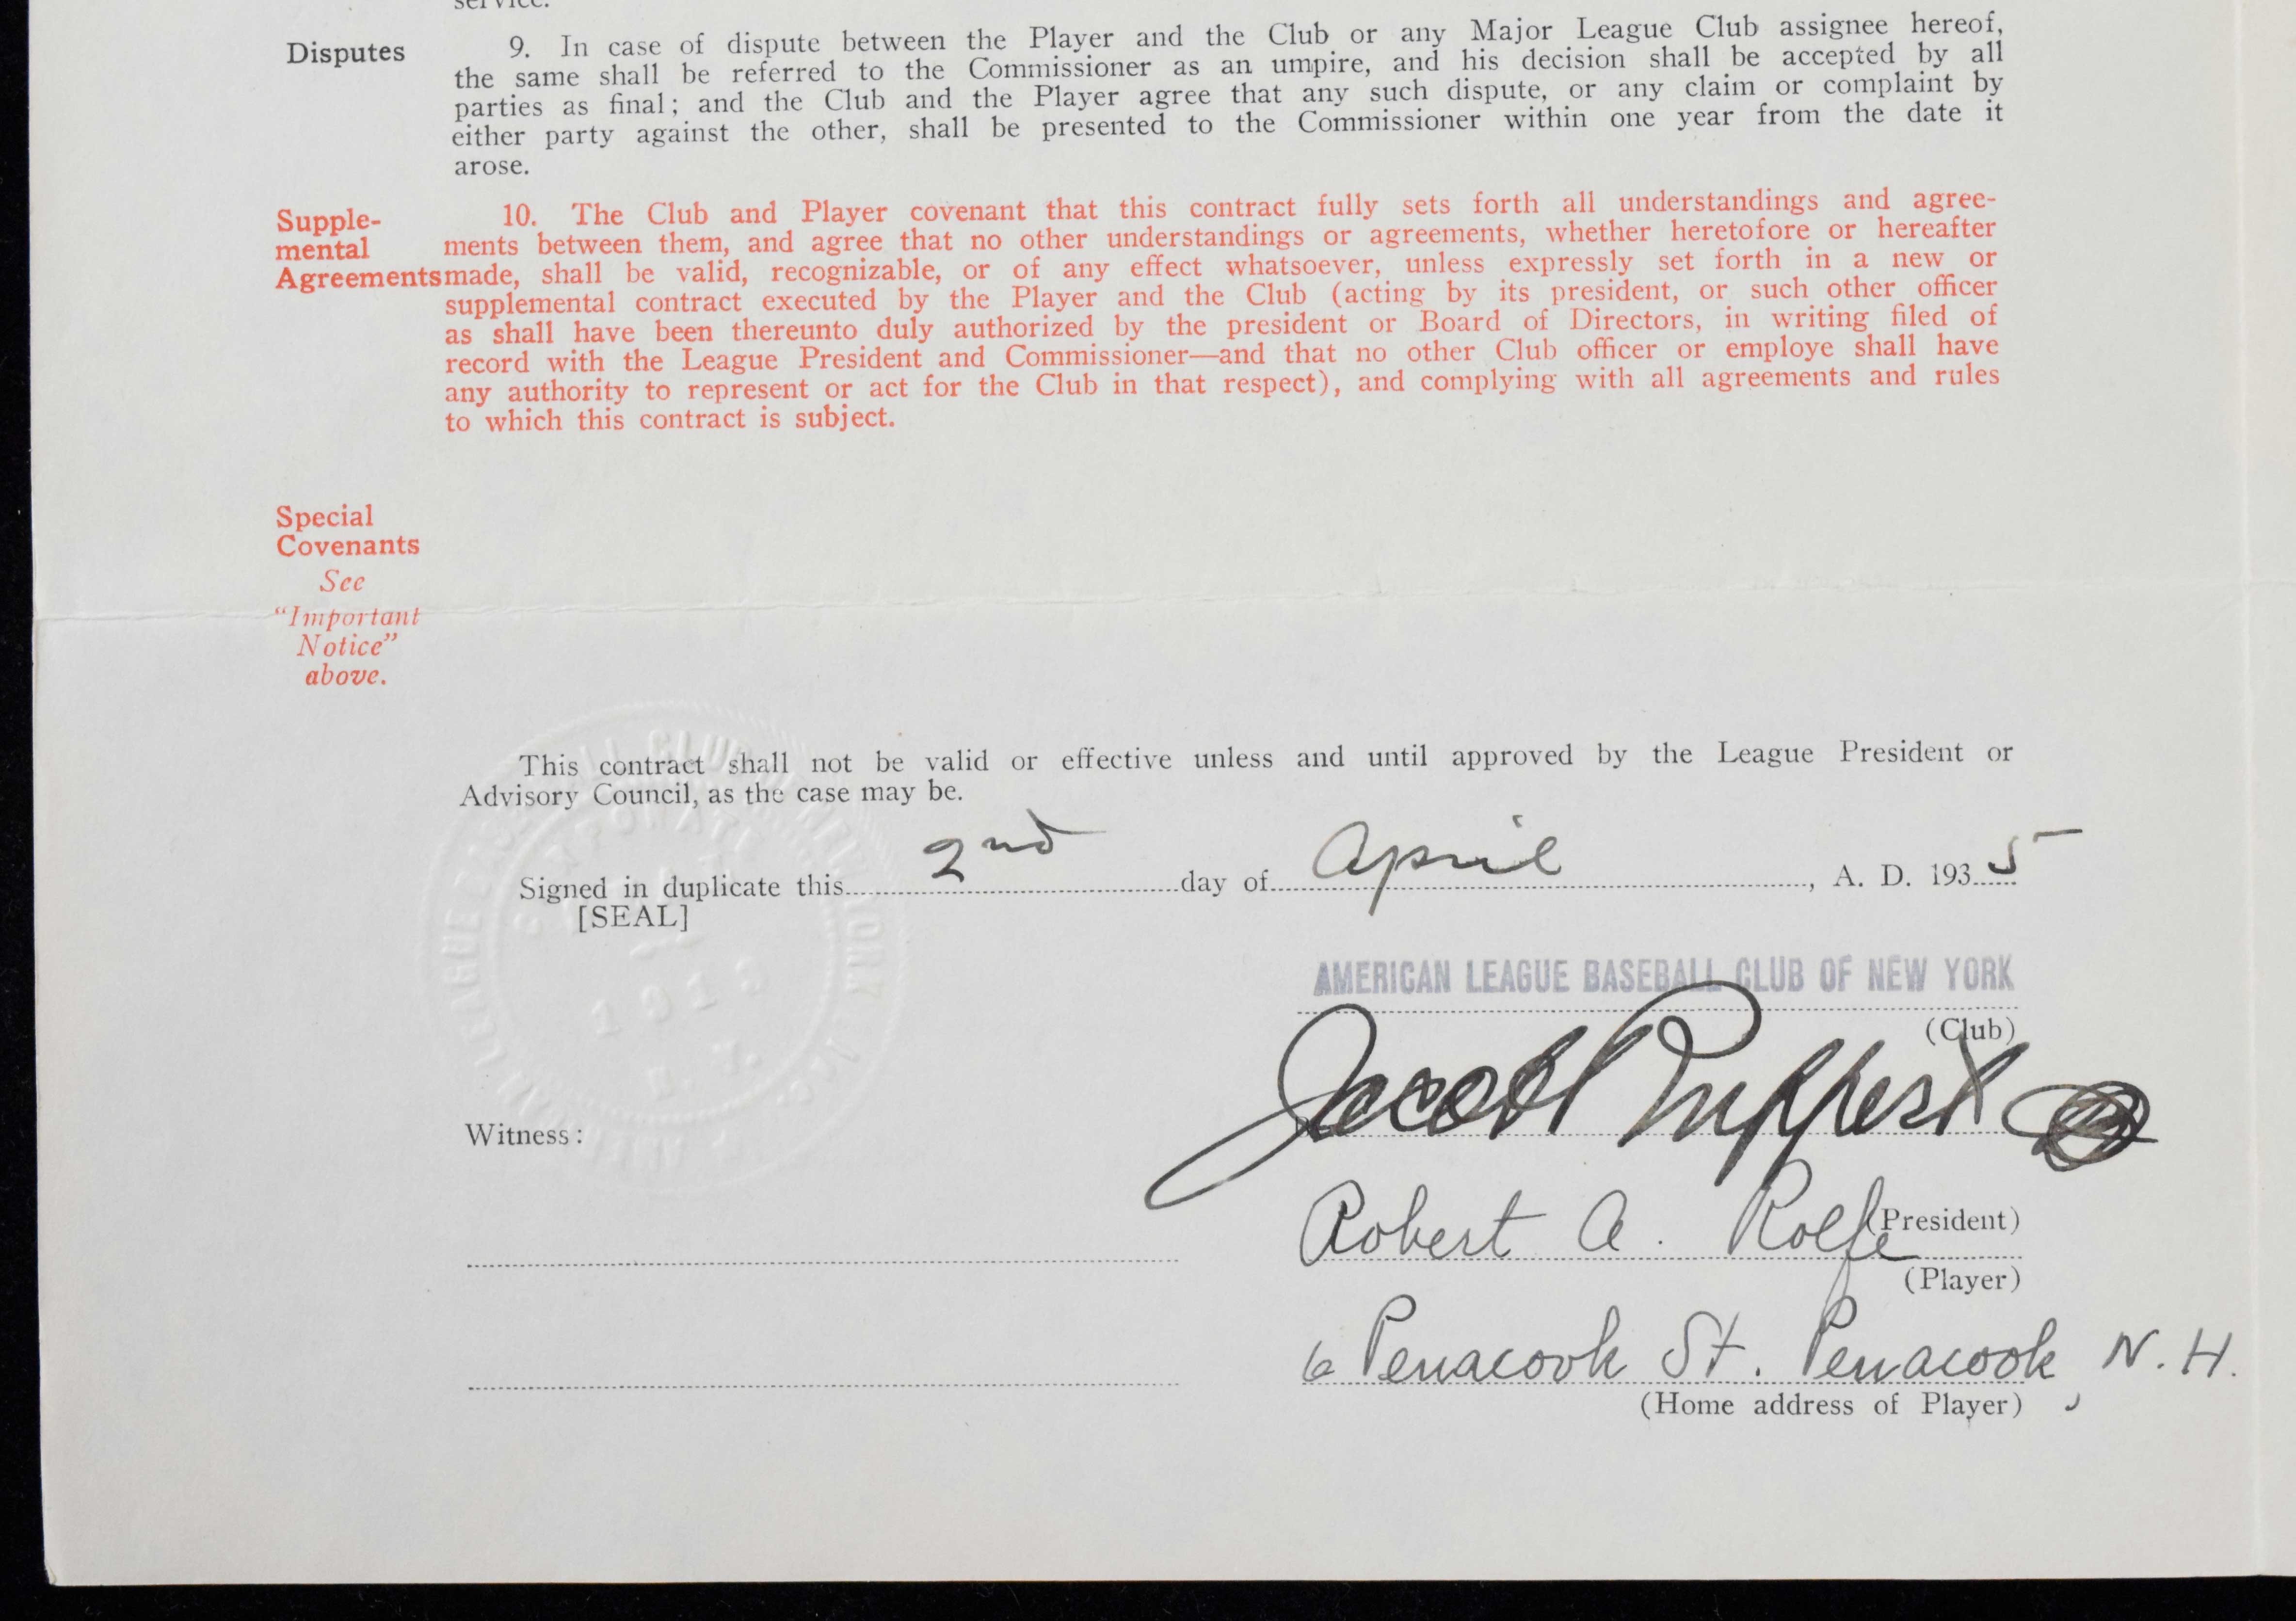 service.
Disputes 9. In case of dispute between the Player and the Club or any Major League Club assignee hereof,
the same shall be referred to the Commissioner as an umpire, and his decision shall be accepted by all
parties as final; and the Club and the Player agree that any such dispute, or any claim or complaint by
either party against the other, shall be presented to the Commissioner within one year from the date it
arose.
Supple- 10. The Club and Player covenant that this contract fully sets forth all understandings and agree-
mental ments between them, and agree that no other understandings or agreements, whether heretofore or hereafter
Agreements made, shall be valid, recognizable, or of any effect whatsoever, unless expressly set forth in a new or
supplemental contract executed by the Player and the Club (acting by its president, or such other officer
as shall have been thereunto duly authorized by the president or Board of Directors, in writing filed of
record with the League President and Commissioner—and that no other Club officer or employe shall have
any authority to represent or act for the Club in that respect), and complying with all agreements and rules
to which this contract is subject.
Special
Covenants
See
"Important
Notice"
above.
This contract shall not be valid or effective unless and until approved by the League President or
Advisory Council, as the case may be.
Signed in duplicate this 2nd day of April, A. D. 1935
[SEAL]
AMERICAN LEAGUE BASEBALL CLUB OF NEW YORK
(Club)
Jacob Ruppert
Witness:
(President)
Robert A. Rolfe
(Player)
6 Penacook St. Penacook, N.H.
(Home address of Player)
1913
N. Y.